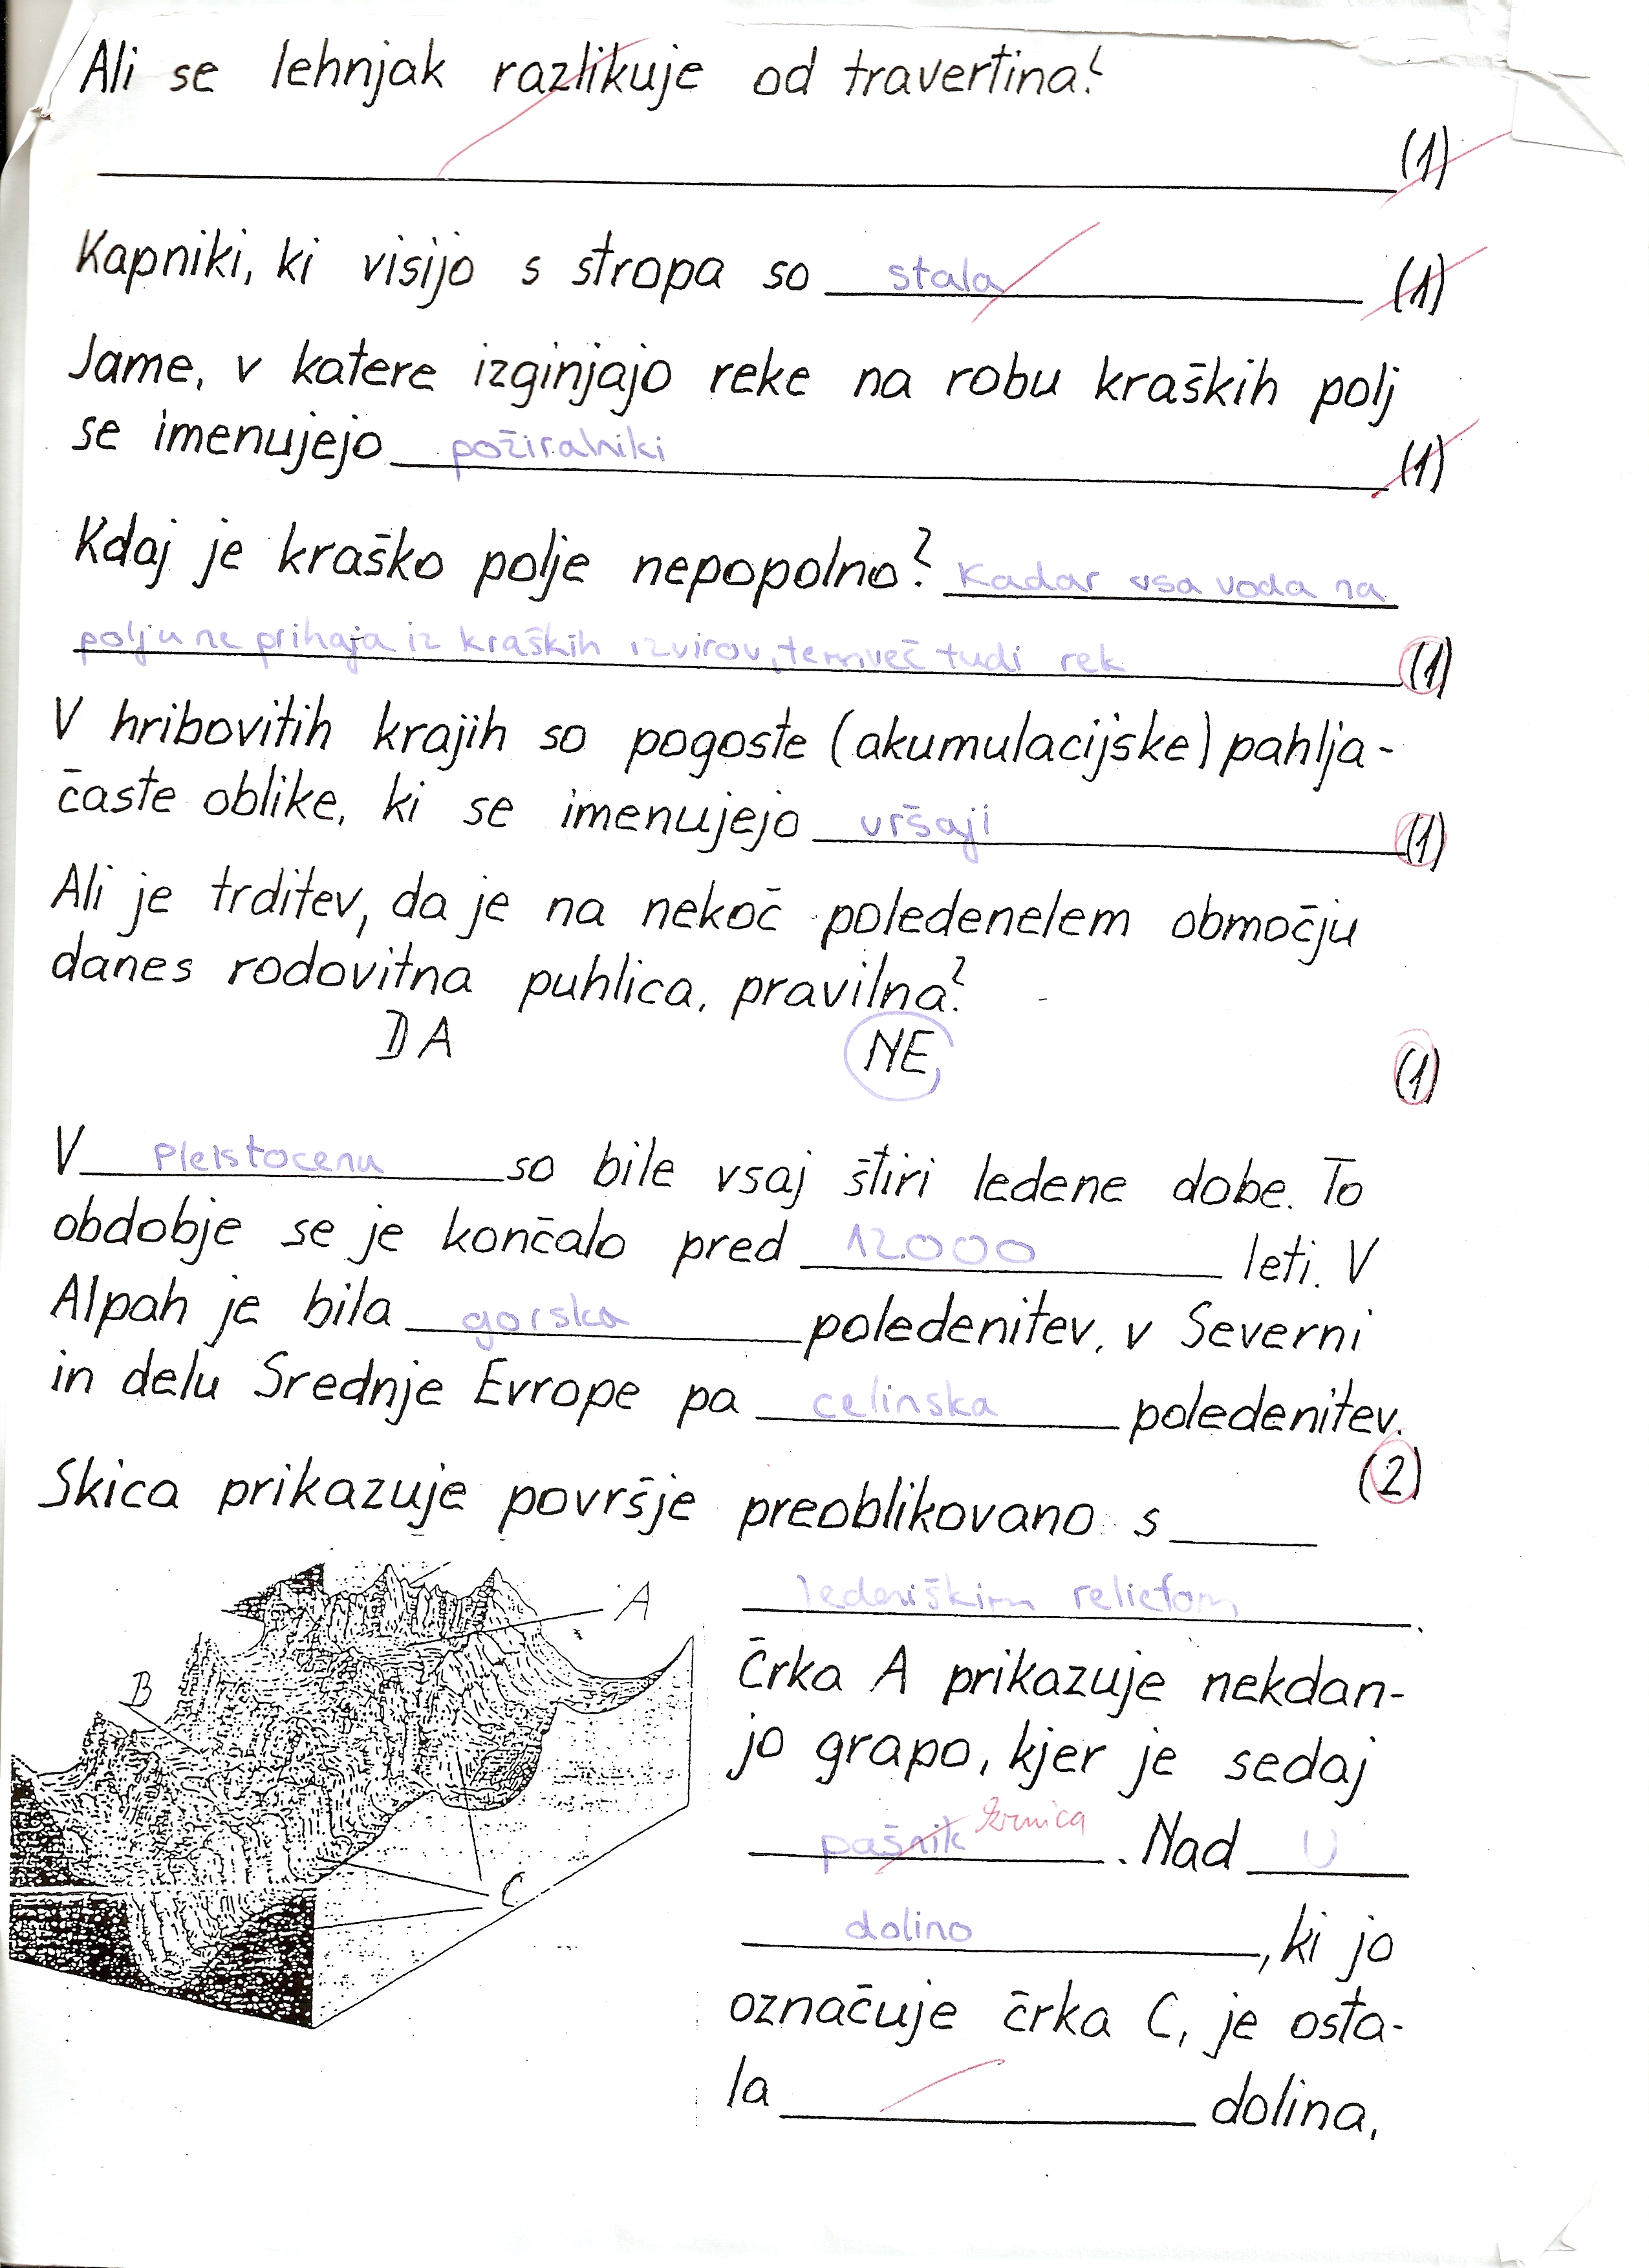 Ali se lehnjak razlikuje od travertina?
(1)
Kapniki, ki visijo s stropa so stala (1)
Jame, v katere izginjajo reke na robu kraških polj
se imenujejo požiralniki (1)
Kdaj je kraško polje nepopolno? Kadar vsa voda na
polju ne prihaja iz kraških izvirov, temveč tudi rek (1)
V hribovitih krajih so pogoste (akumulacijske) pahlja-
časte oblike, ki se imenujejo vršaji (1)
Ali je trditev, da je na nekoč poledenelem območju
danes rodovitna puhlica, pravilna?
DA NE (1)
V Pleistocenu so bile vsaj štiri ledene dobe. To
obdobje se je končalo pred 12.000 leti. V
Alpah je bila gorska poledenitev, v Severni
in delu Srednje Evrope pa celinska poledenitev.
(2)
Skica prikazuje površje preoblikovano s
ledeniškim reliefom.
A
B
C
Črka A prikazuje nekdan-
jo grapo, kjer je sedaj
pašnik krnica. Nad U
dolino, ki jo
označuje črka C, je osta-
la dolina,